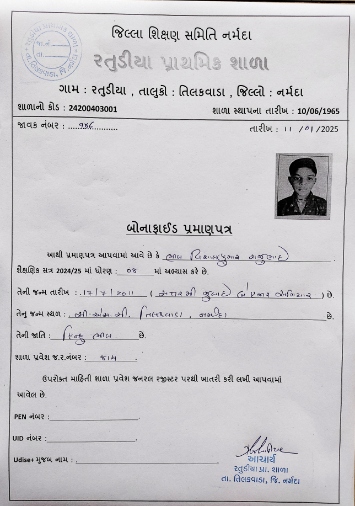 જિલ્લા શિક્ષણ સમિતિ નર્મદા
રતુડીયા પ્રાથમિક શાળા
ગામ : રતુડીયા , તાલુકો : તિલકવાડા , જિલ્લો : નર્મદા
શાળાનો કોડ : 24200403001 શાળા સ્થાપના તારીખ : 10/06/1965
જાવક નંબર : તારીખ : 11 /01 /2025
બોનાફાઈડ પ્રમાણપત્ર
આથી પ્રમાણપત્ર આપવામાં આવે છે કે
શૈક્ષણિક સત્ર 2024/25 માં ધોરણ : 08 માં અભ્યાસ કરે છે.
તેની જન્મ તારીખ : 17/7/2011 ( ) છે.
તેનુ જન્મ સ્થળ : તિલકવાડા, નર્મદા છે.
તેની જાતિ : હિન્દુ છે.
શાળા પ્રવેશ જ.ર.નંબર :
ઉપરોક્ત માહિતી શાળા પ્રવેશ જનરલ રજીસ્ટર પરથી ખાતરી કરી લખી આપવામાં
આવેલ છે.
PEN નંબર :
UID નંબર :
Udise+ મુજબ નામ :
આચાર્ય
રતુડીયા પ્રા. શાળા
તા. તિલકવાડા, જિ. નર્મદા